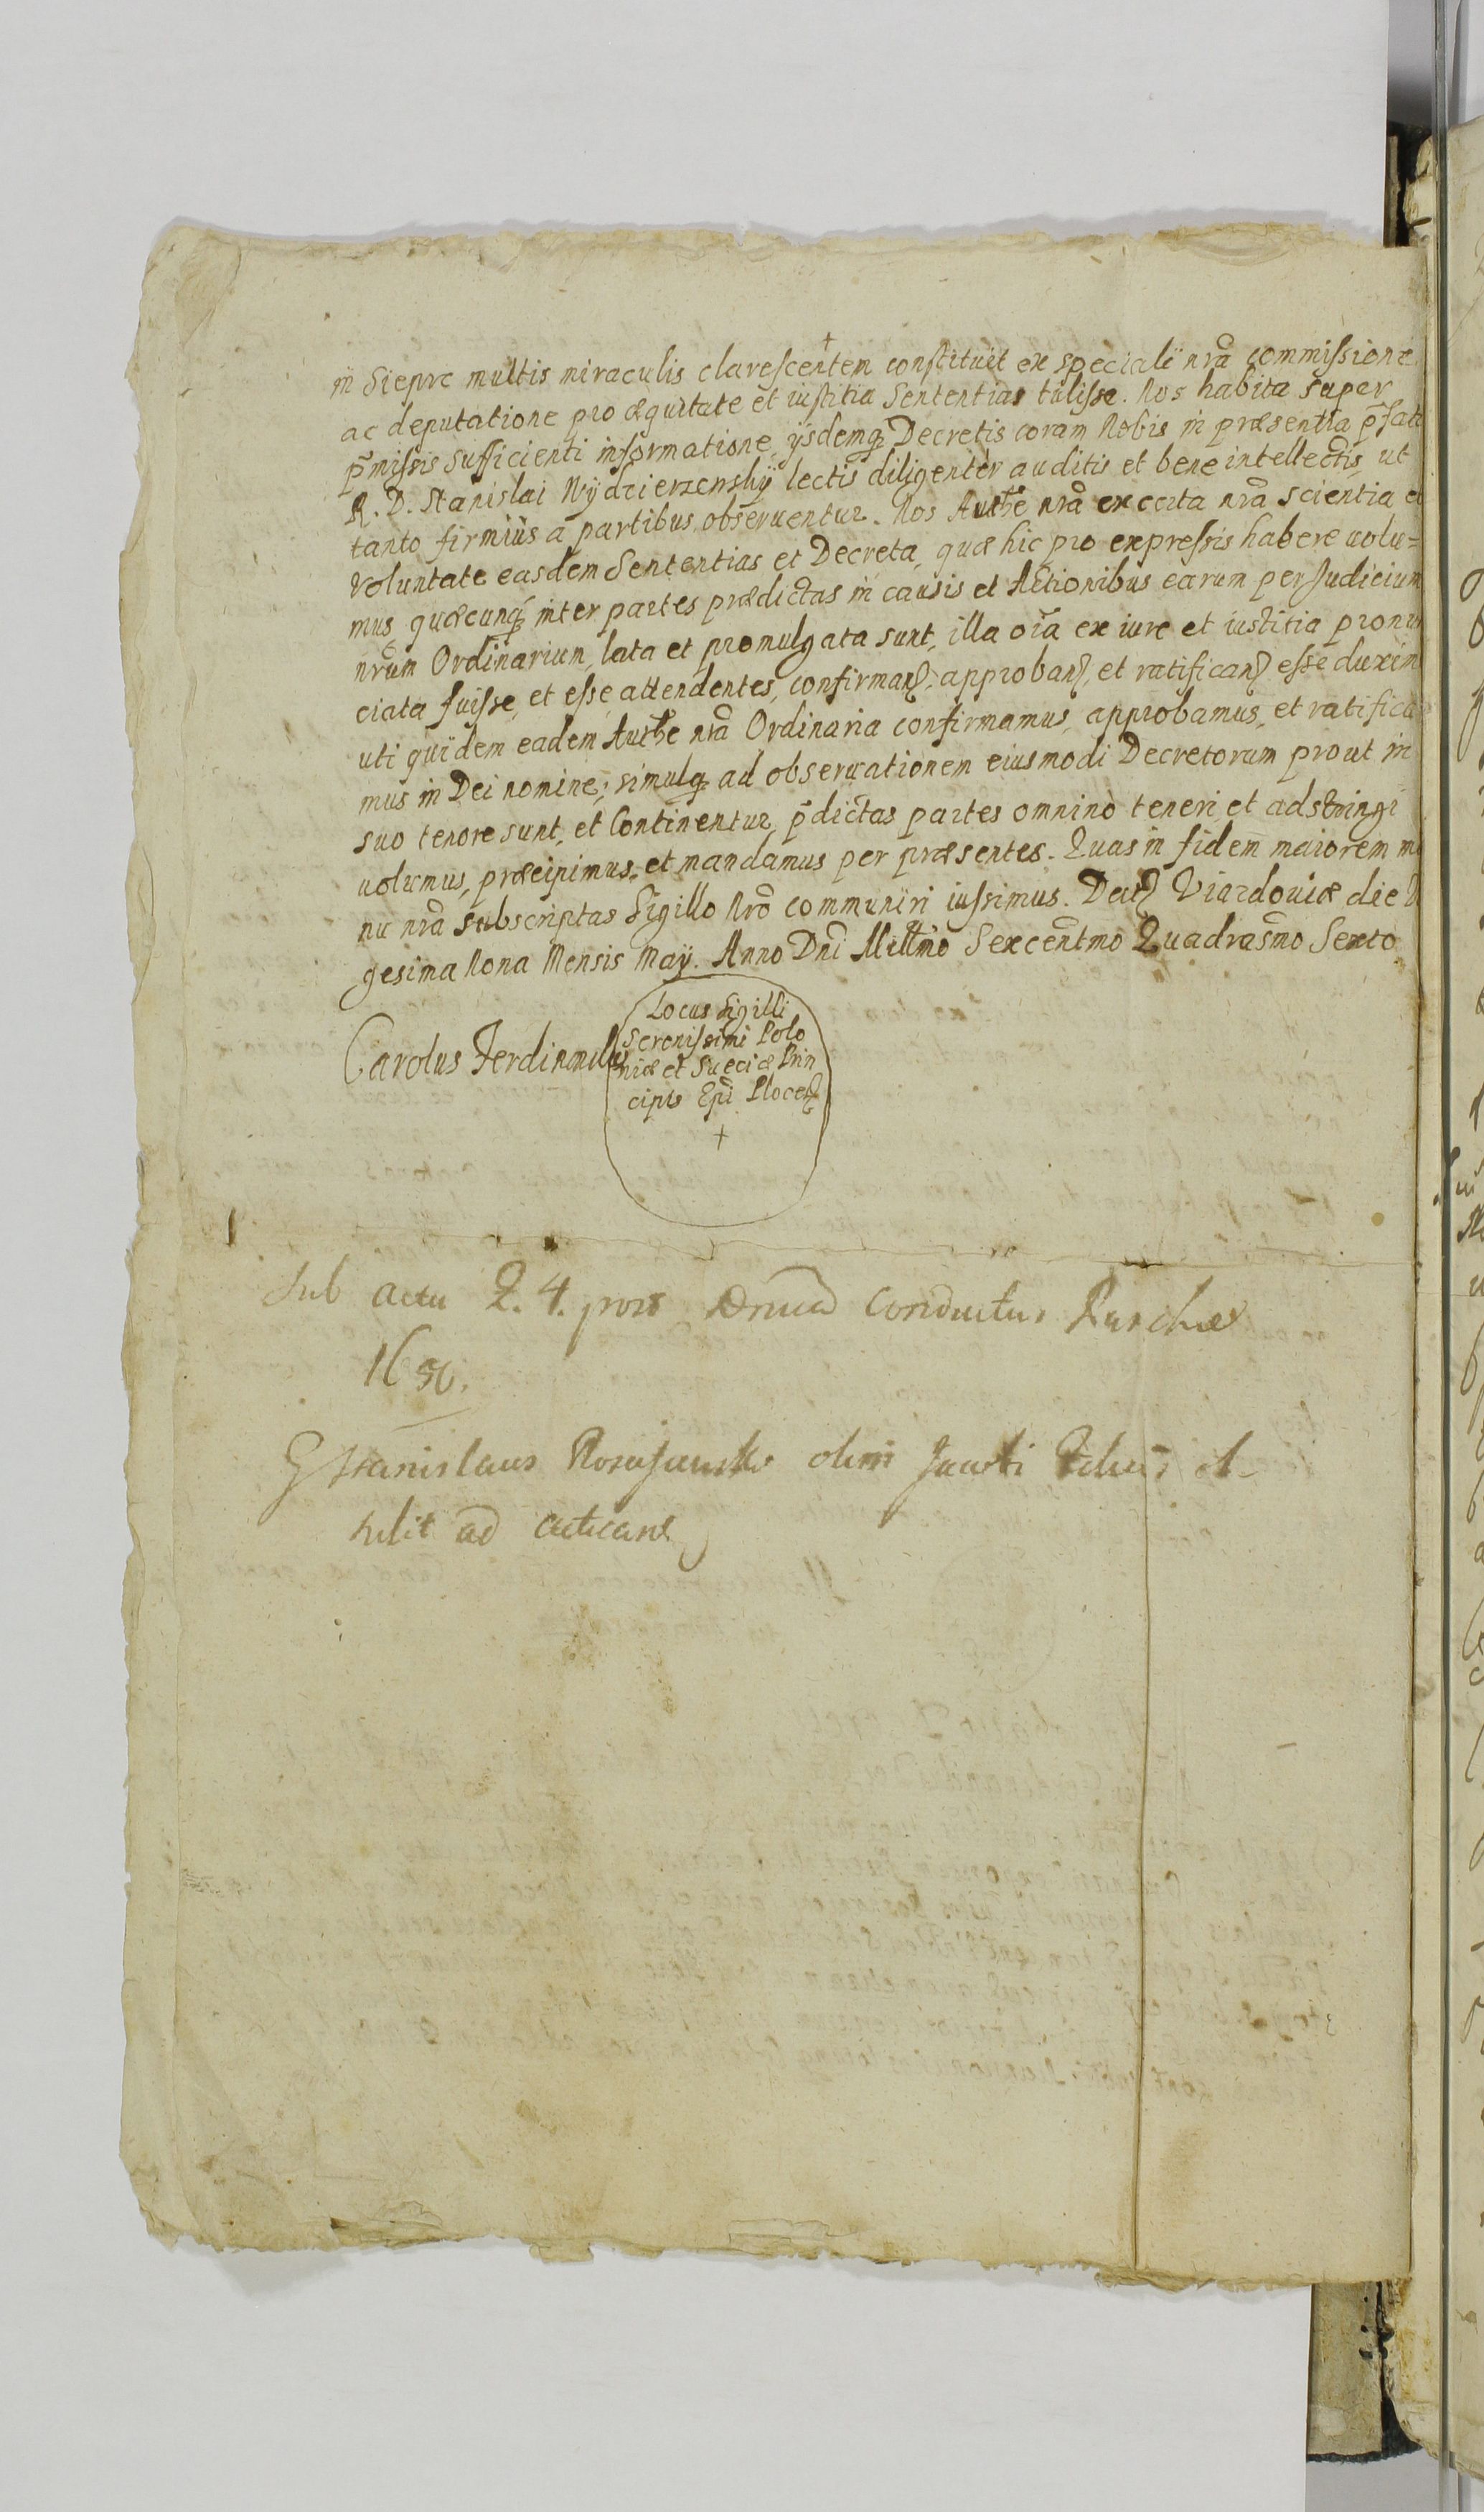 in Sieprc multis miraculis clarescentem constituit ex speciali nrã commissione
ac deputatione pro æquitate et iustitia Sententias tulisse. Nos habita super
p̃missis sufficienti informatione, ijsdemq₃ Decretis coram Nobis in præsentia p̃fati
R. D. Stanislai Wÿdzierzewskÿ lectis diligenter auditis et bene intellectis, ut
tanto firmiùs à partibus obseruentur. Nos Authe nrã ex certa nrã scientia et
voluntate easdem Sententias et Decreta, quæ hic pro expressis habere uolu=
mus, quæcunq₃ inter partes prædictas in causis et Actionibus earum per Iudicium
nrũm Ordinarium, lata et promulgata sunt, illa oĩa ex iure et iustitia pronun
ciata fuisse, et esse attendentes, confirmanꝭ, approbanꝭ, et ratificanꝭ esse duxim
uti quidem eadem Authe nrã Ordinaria confirmamus, approbamus, et ratifica
mus in Dei nomine; simulq₃ ad obseruationem eiusmodi Decretorum prout in
suo tenore sunt, et Continentur, p̃dictas partes omninò teneri, et adstringi
uolumus, præcipimus, et mandamus per præsentes. Quas in fidem maiorem ma
nu nrã subscriptas Sigillo Nrõ communiri iussimus. Datꝭ Viardouiæ die V
gesima Nona Mensis Maÿ. Anno Dñi Millm̃o Sexcentm̃o Quadrasm̃o Sexto
Carolus Ferdinandus
Locus Sigilli
Serenissimi Polo
niæ et Sueciæ Prin
cipis Epĩ Plocenꝭ
+
Sub actu 2. 4. post Conductus Paschæ
16
Stanislaus olim
tulit ad acticanꝭ